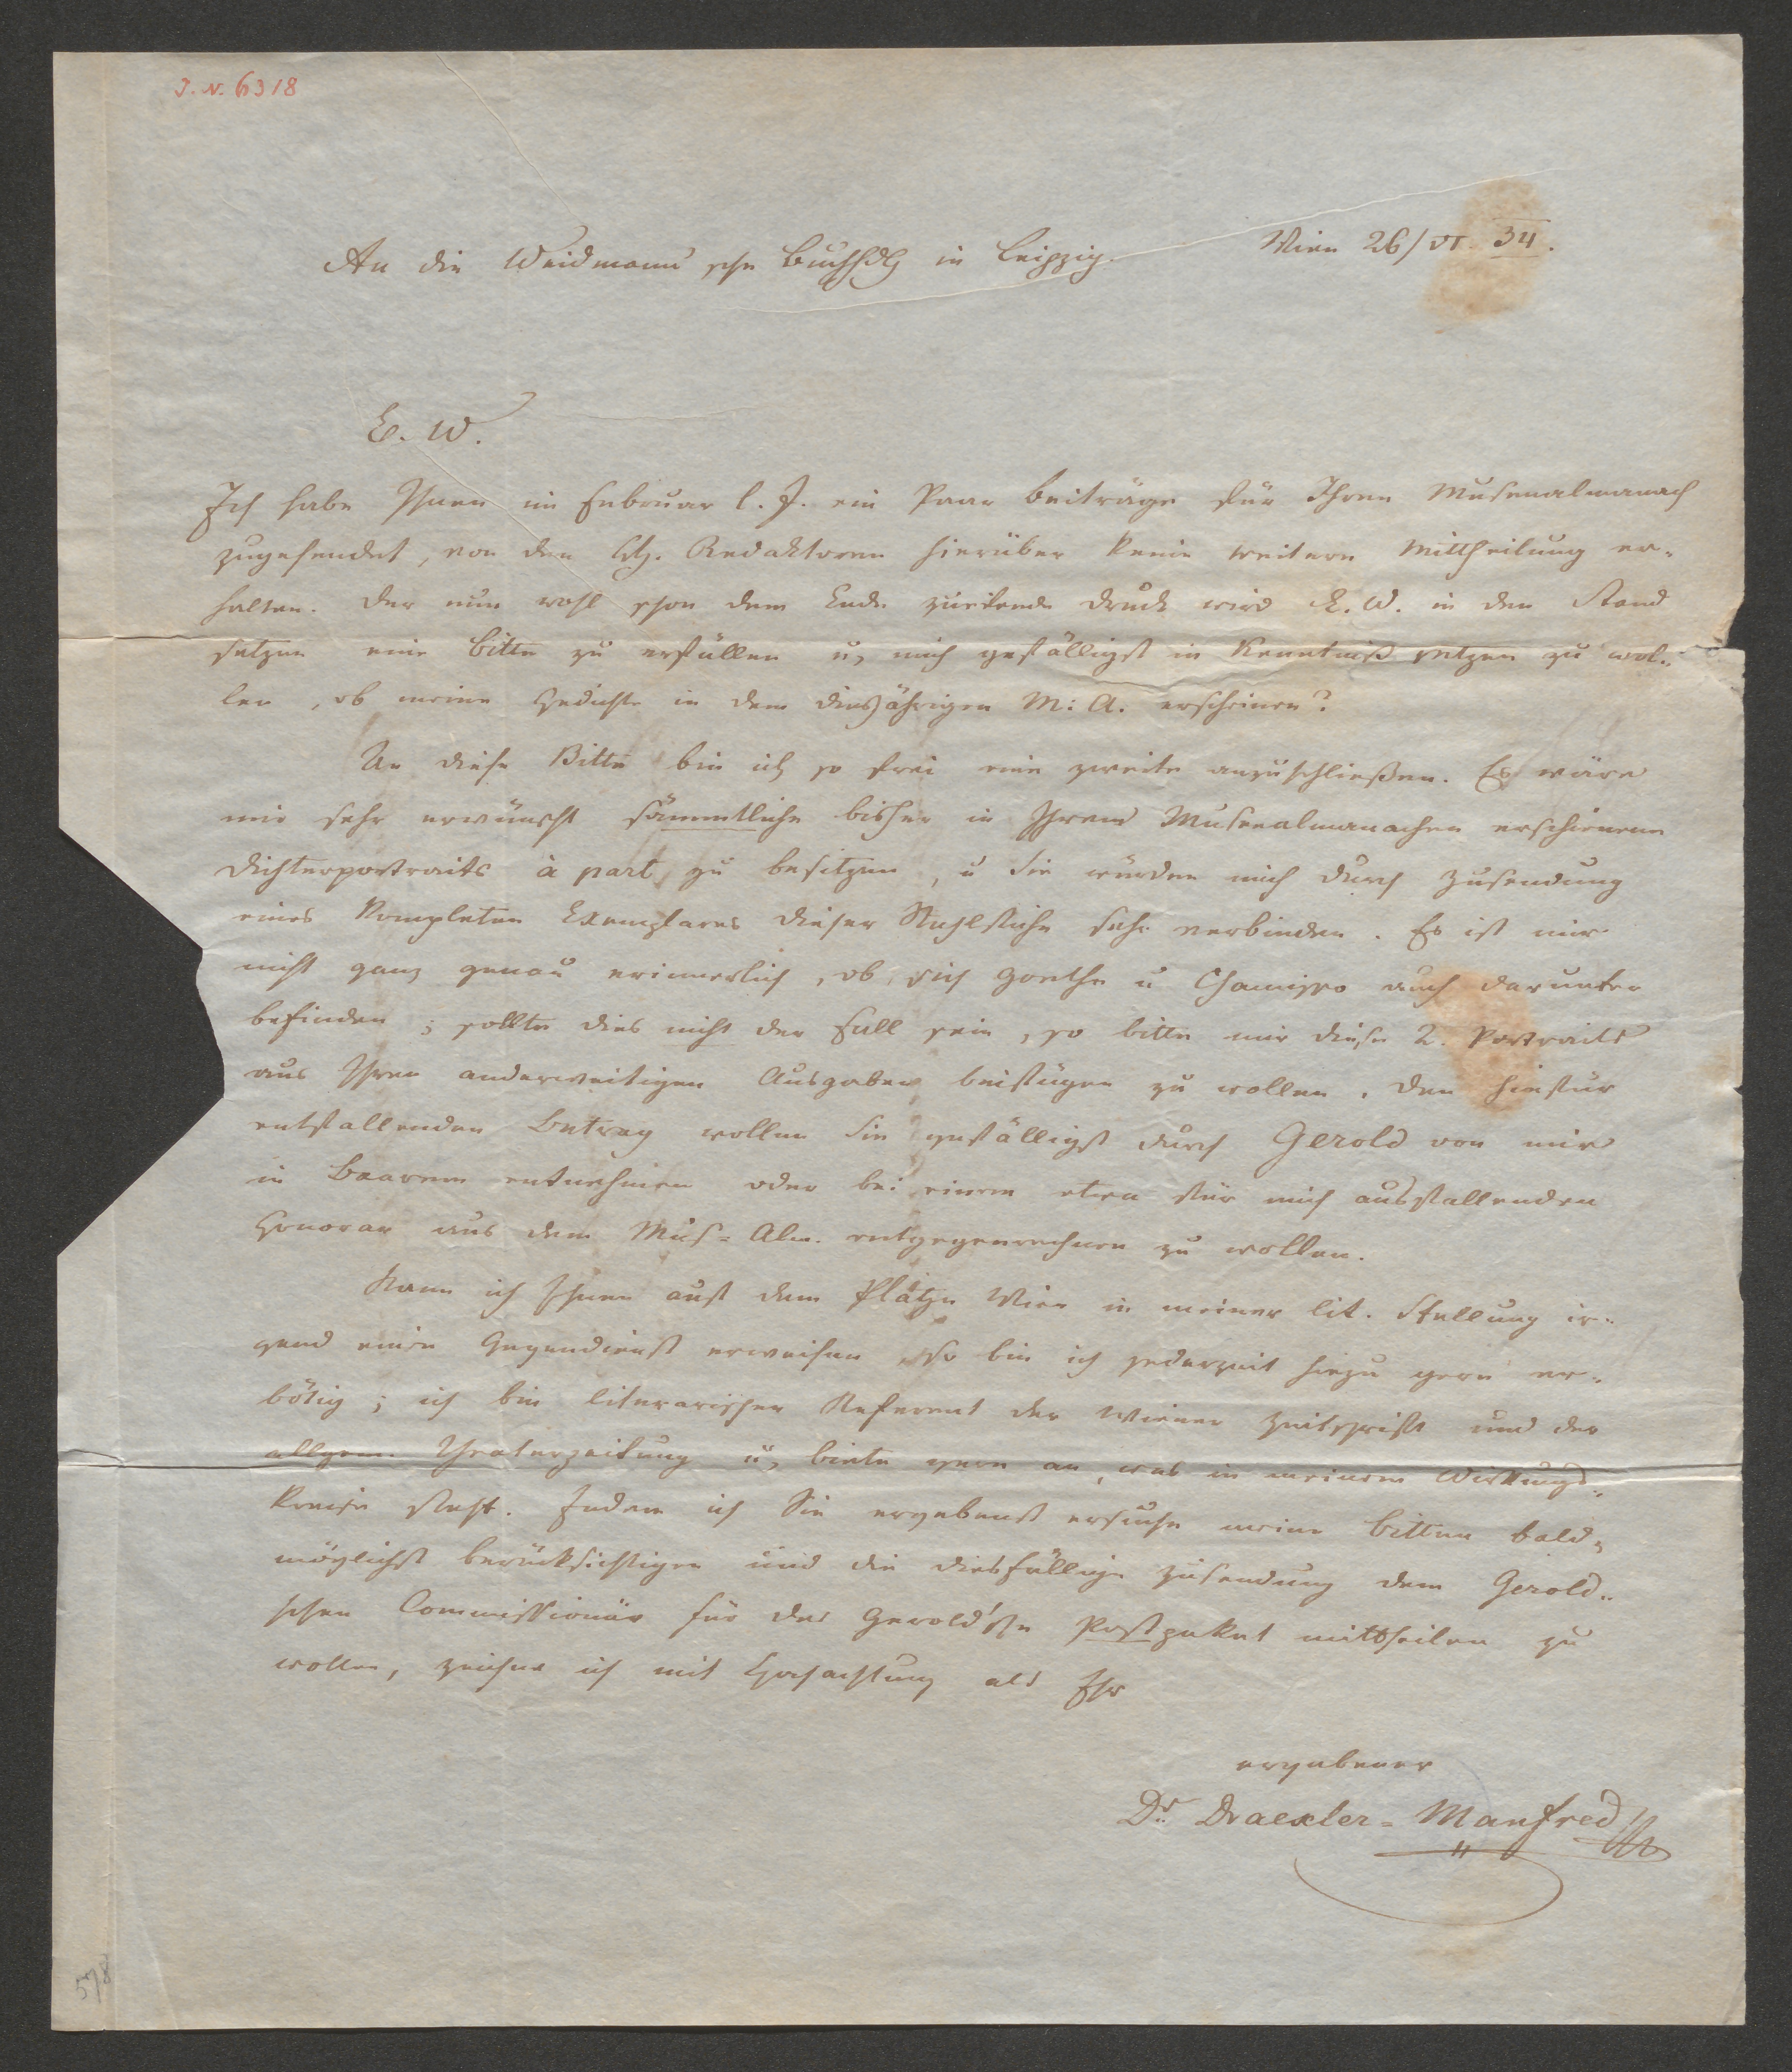 J. N. 6318
Wien 26/VI. 34.
An die Weidmann'sche Buchhdlg in Leipzig.
E. W.
Ich habe Ihnen im Februar l. J. ein Paar Beiträge für Ihren Musenalmanach
zugesendet, von den Hh. Redaktoren hierüber keine weitere Mittheilung er-
halten. Der nun wohl schon dem Ende zueilende Druck wird E. W. in den Stand
setzen eine Bitte zu erfüllen u, mich gefälligst in Kenntniß setzen zu wol-
len, ob meine Gedichte in dem diesjährigen M: A. erscheinen?
An diese Bitte bin ich so frei eine zweite anzuschließen. Es wäre
mir sehr erwünscht sämmtliche bisher in Ihren Musenalmanachen erschienene
Dichterportraits à part zu besitzen, u Sie würden mich durch Zusendung
eines kompleten Exemplares dieser Stahlstiche sehr verbinden. Es ist mir
nicht ganz genau erinnerlich, ob sich Goethe u Chamisso auch darunter
befinden; sollte dies nicht der Fall sein, so bitte mir diese 2. Portraits
aus Ihren anderweitigen Ausgaben beifügen zu wollen. Den hiefür
entfallenden Betrag wollen Sie gefälligst durch Gerold von mir
in Baarem entnehmen oder bei einem etwa für mich ausfallenden
Honorar aus dem Mus=Alm. entgegenrechnen zu wollen.
Kann ich Ihnen auf dem Platze Wien in meiner lit. Stellung ir-
gend einen Gegendienst erweisen, so bin ich jederzeit hiezu gern er-
bötig; ich bin literarischer Referent der Wiener Zeitschrift und der
allgem. Theaterzeitung u, biete gern an, was in meinem Wirkungs-
kreise steht. Indem ich Sie ergebenst ersuche meine Bitten bald-
möglichst berücksichtigen und die diesfällige Zusendung dem Gerold-
schen Commissionär für das Gerold'sche Postpaket mittheilen zu
wollen, zeichne ich mit Hochachtung als Ihr
ergebener
Dr. Draexler-Manfred
578